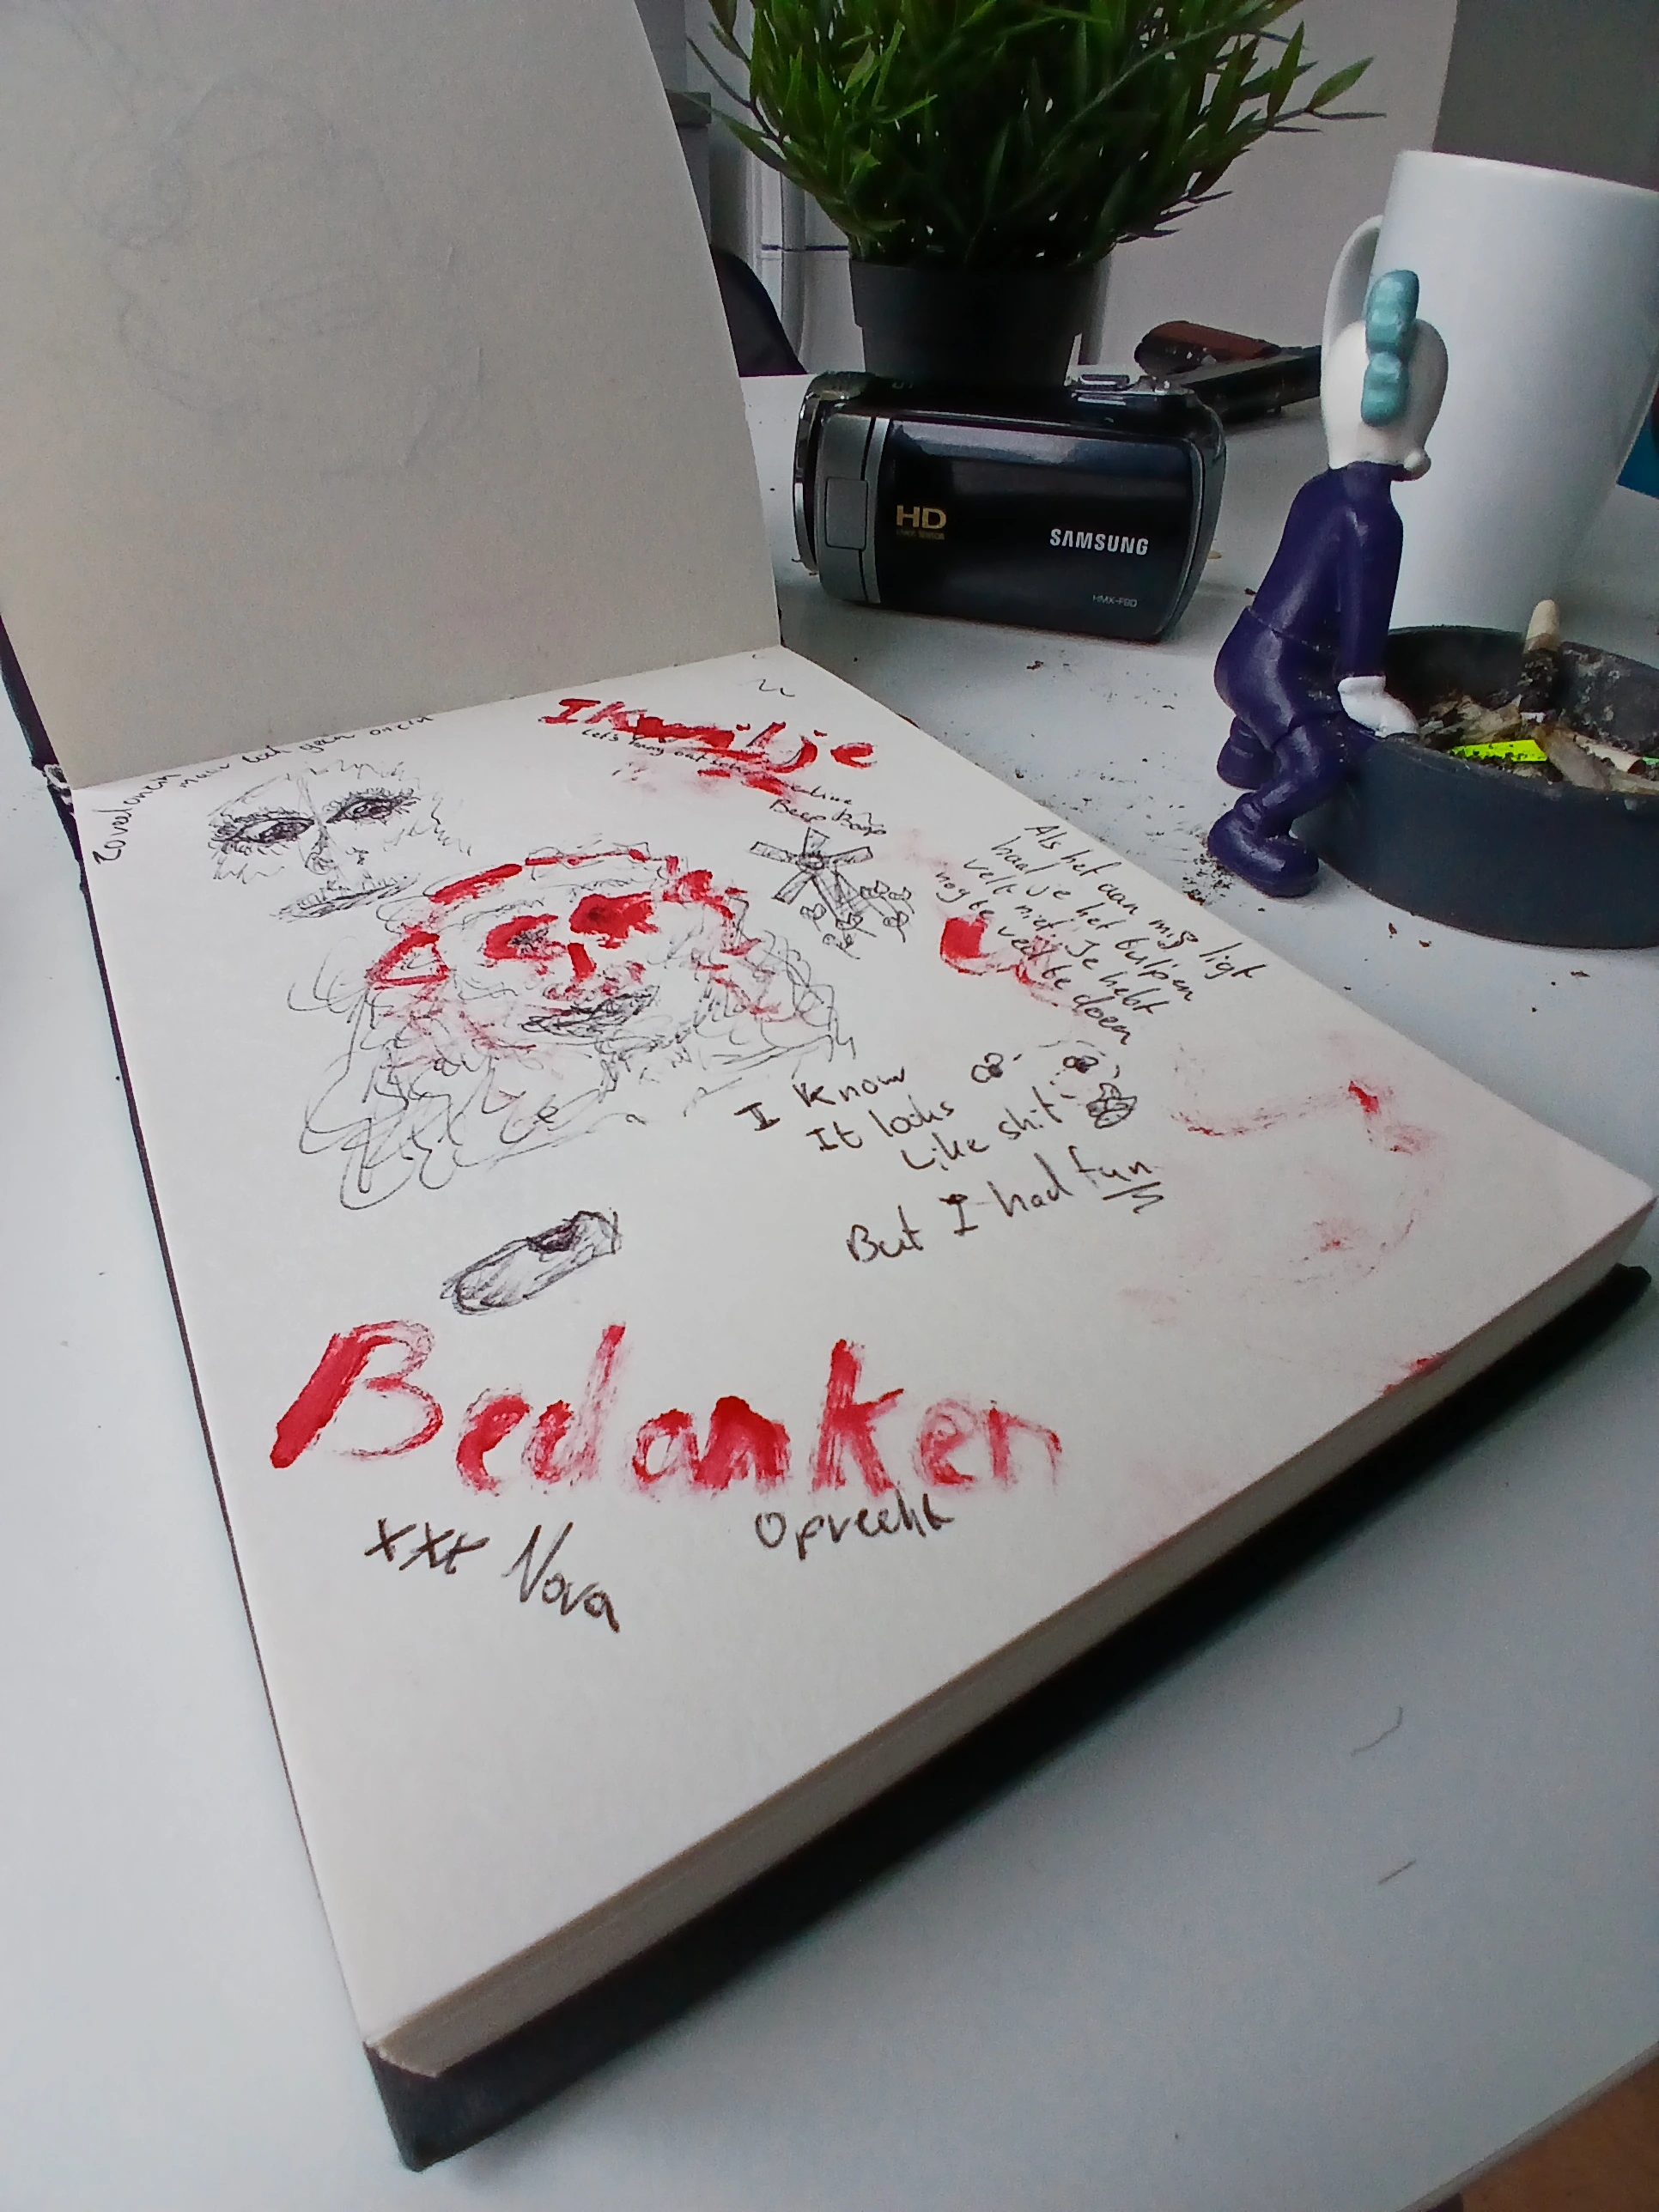 maar toch geen
IK wil je
Let's hang out
Beep Boop
Als het aan mij ligt
haal je het tulpen
velt niet. Je hebt
nog te veel te doen
I know
It looks
Like shit
But I had fun
Bedanken
Oprecht
xxx Nova
HD
SAMSUNG
HMX-F80